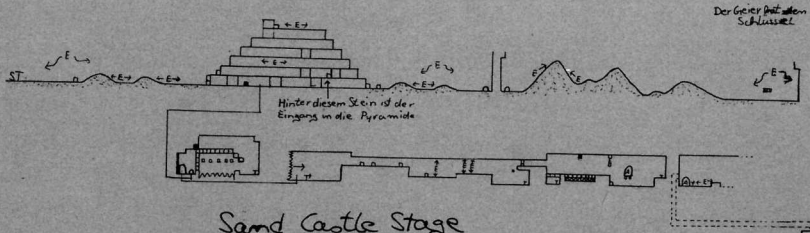 Der Geier den
Schlüssel
E
← E →
← E →
E
E
E
← E →
E
ST.
← E →
← E →
← E →
E
Hinter diesem Stein ist der
Eingang in die Pyramide
← E →
Sand Castle Stage